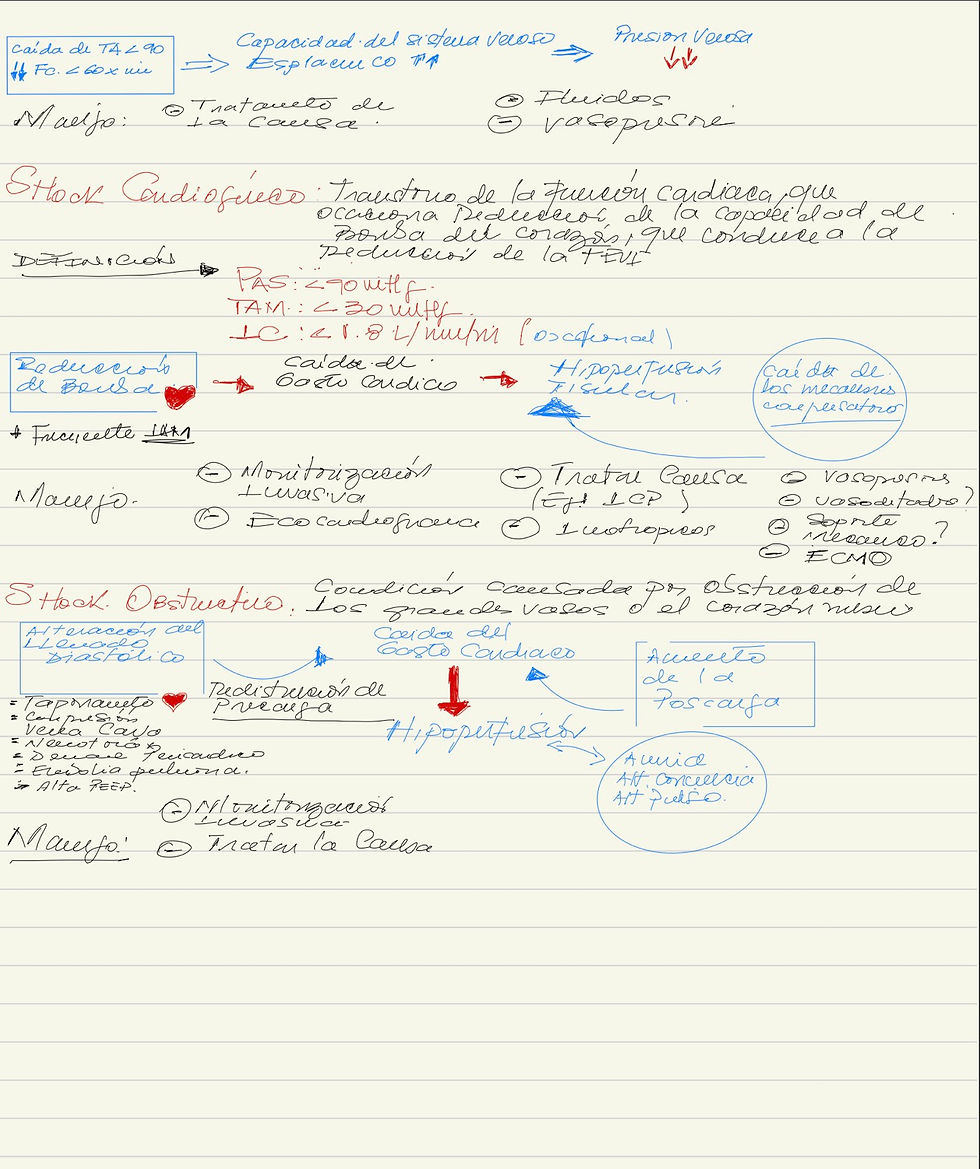 Caída de TA < 90
↓↓ Fc. < 60 x min
⇒ Capacidad del sistema venoso
Esplacnico ↑↑
⇒ Presion Venosa
↓↓
Manejo:
⊖ Tratamiento de
la causa.
⊖ Fluidos
⊖ vasopresore
Shock Cardiogénico: Transtorno de la función cardiaca, que
ocaciona reducción de la capacidad de
Bomba del corazón, que conduce a la
reducción de la FEVI
DEFINICIÓN
PAS: < 90 mmHg.
TAM.: < 30 mmHg.
IC: < 1.8 L/min/m (
Reducción
de Bomba
Caída de
Gasto Cardiaco
Hipoperfusión
Tisular.
Caída de
los mecanismos
compensatorio
+ Frecuente IAM
Manejo.
⊖ Monitorización
Invasiva
⊖ Ecocardiograma
⊖ Tratar Causa
(Ej: ICP)
⊖ Inotropicos
⊖ vasopresores
⊖ vasodilatador?
⊖ Soporte
mecanico?
⊖ ECMO
Shock Obstructivo: Condición causada por obstrucción de
los grandes vasos o el corazón mismo
Alteración del
Llenado
Diastólico
Caida del
Gasto Cardiaco
Aumento
de la
Poscarga
Redistribución de
Precarga
Hipoperfusión
= Taponamiento
= Compresión
Vena Cava
= Neumotorax
= Derrame Pericardico
= Embolia pulmonar.
= Alta PEEP.
Anuria
Alt. Conciencia
Alt. Pulso.
Manejo:
⊖ Monitorización
Invasiva
⊖ Tratar la Causa